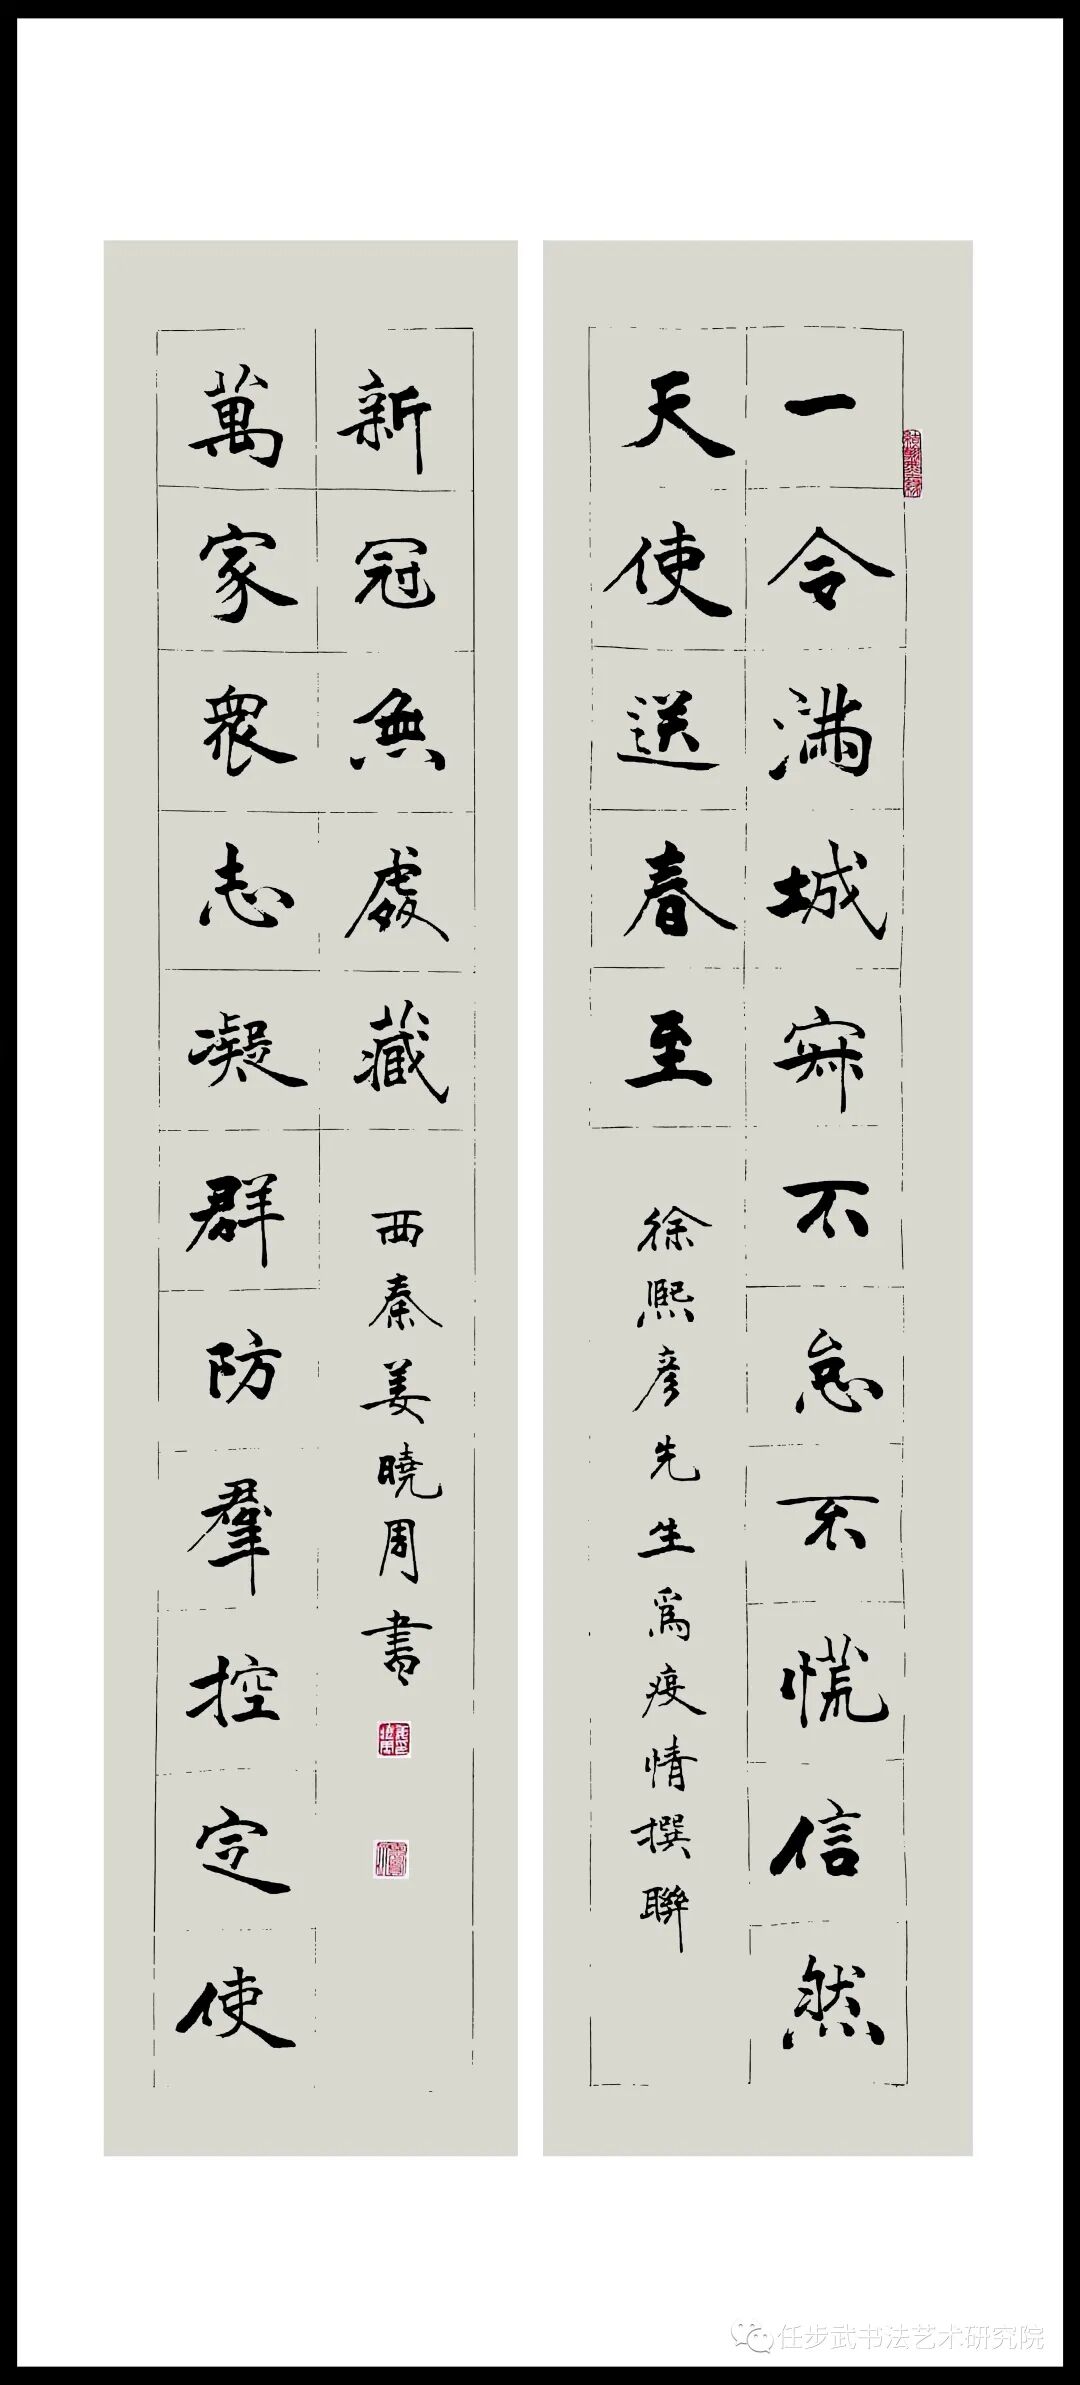 一令满城寂不怠不慌信然
天使送春至
徐熙彦先生爲疫情撰聯
萬家衆志凝群防羣控定使
新冠無處藏
西秦姜曉周書
任步武书法艺术研究院